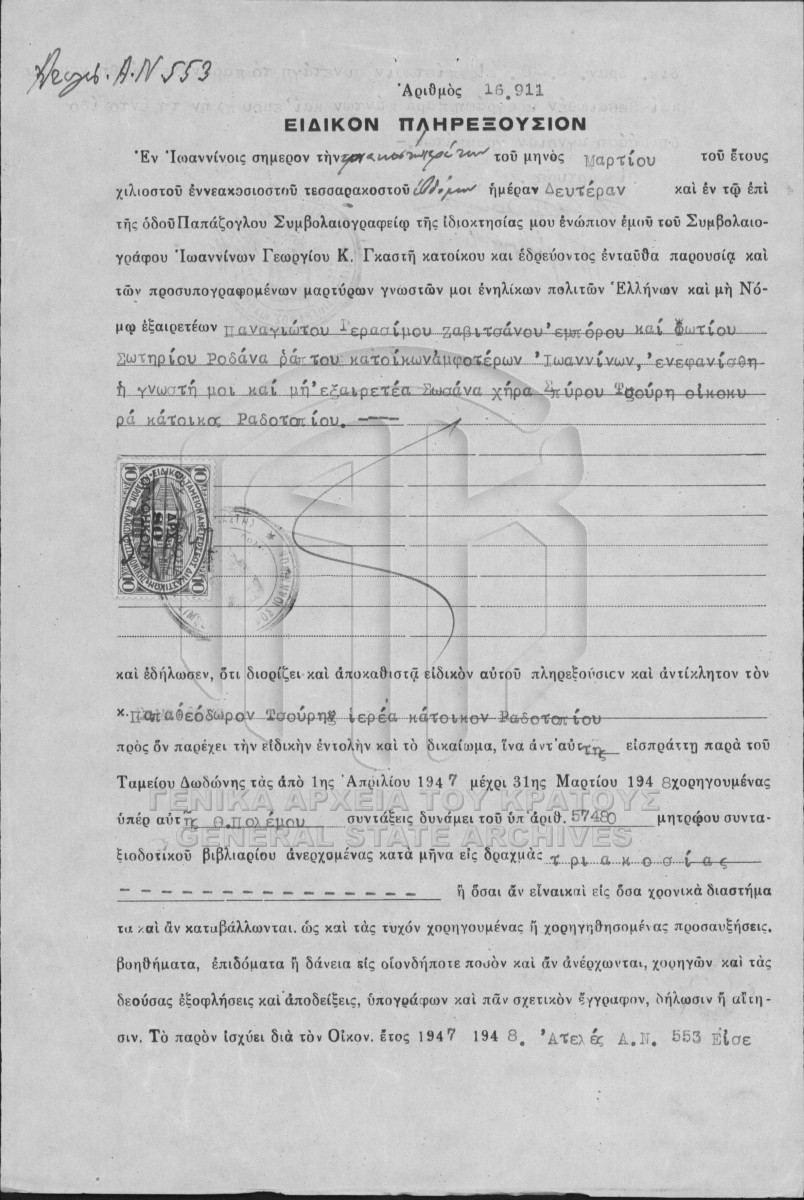 Α.Ν 553
Ἀριθμὸς 16.911
ΕΙΔΙΚΟΝ ΠΛΗΡΕΞΟΥΣΙΟΝ
Ἐν Ἰωαννίνοις σήμερον τὴν τριακοστὴν πρώτην τοῦ μηνὸς Μαρτίου τοῦ ἔτους
χιλιοστοῦ ἐννεακοσιοστοῦ τεσσαρακοστοῦ ἑβδόμου ἡμέραν Δευτέραν καὶ ἐν τῷ ἐπὶ
τῆς ὁδοῦ Παπάζογλου Συμβολαιογραφείῳ τῆς ἰδιοκτησίας μου ἐνώπιον ἐμοῦ τοῦ Συμβολαιο-
γράφου Ἰωαννίνων Γεωργίου Κ. Γκαστῆ κατοίκου καὶ ἑδρεύοντος ἐνταῦθα παρουσίᾳ καὶ
τῶν προσυπογραφομένων μαρτύρων γνωστῶν μοι ἐνηλίκων πολιτῶν Ἑλλήνων καὶ μὴ Νό-
μῳ ἐξαιρετέων Παναγιώτου Γερασίμου Ζαβιτσάνου ἐμπόρου καί Φωτίου
Σωτηρίου Ροδάνα ράπτου κατοίκωνἀμφοτέρων Ἰωαννίνων, ἐνεφανίσθη
ἡ γνωστή μοι καί μή ἐξαιρετέα Σωσάνα χήρα Σπύρου Τσούρη οἰκοκυ
ρά κάτοικος Ραδοτοπίου. -----
10 10
ΔΡΑΧ.
80
10 10
καὶ ἐδήλωσεν, ὅτι διορίζει καὶ ἀποκαθιστᾷ εἰδικὸν αὐτοῦ πληρεξούσιον καὶ ἀντίκλητον τὸν
κ. Παπαθεόδωρον Τσούρης ἱερέα κάτοικον Ραδοτοπίου
πρὸς ὃν παρέχει τὴν εἰδικὴν ἐντολὴν καὶ τὸ δικαίωμα, ἵνα ἀντ' αὐτῆς εἰσπράττῃ παρὰ τοῦ
Ταμείου Δωδώνης τὰς ἀπὸ 1ης Ἀπριλίου 1947 μέχρι 31ης Μαρτίου 1948 χορηγουμένας
ΓΕΝΙΚΑ ΑΡΧΕΙΑ ΤΟΥ ΚΡΑΤΟΥΣ
ὑπὲρ αὐτῆς Θ.Πολέμου συντάξεις δυνάμει τοῦ ὑπ' ἀριθ. 57480 μητρῴου συντα-
GENERAL STATE ARCHIVES
ξιοδοτικοῦ βιβλιαρίου ἀνερχομένας κατὰ μῆνα εἰς δραχμὰς τριακοσίας
- - - - - - - - - - - - - - - ἢ ὅσαι ἂν εἶναικαὶ εἰς ὅσα χρονικὰ διαστήμα
τα καὶ ἂν καταβάλλωνται. ὡς καὶ τὰς τυχὸν χορηγουμένας ἢ χορηγηθησομένας προσαυξήσεις.
βοηθήματα, ἐπιδόματα ἢ δάνεια εἰς οἱονδήποτε ποσὸν καὶ ἂν ἀνέρχωνται, χορηγῶν καὶ τὰς
δεούσας ἐξοφλήσεις καὶ ἀποδείξεις, ὑπογράφων καὶ πᾶν σχετικὸν ἔγγραφον, δήλωσιν ἢ αἴτη-
σιν. Τὸ παρὸν ἰσχύει διὰ τὸν Οἰκον. ἔτος 1947 1948. Ἀτελές Α.Ν. 553 Εἰσε